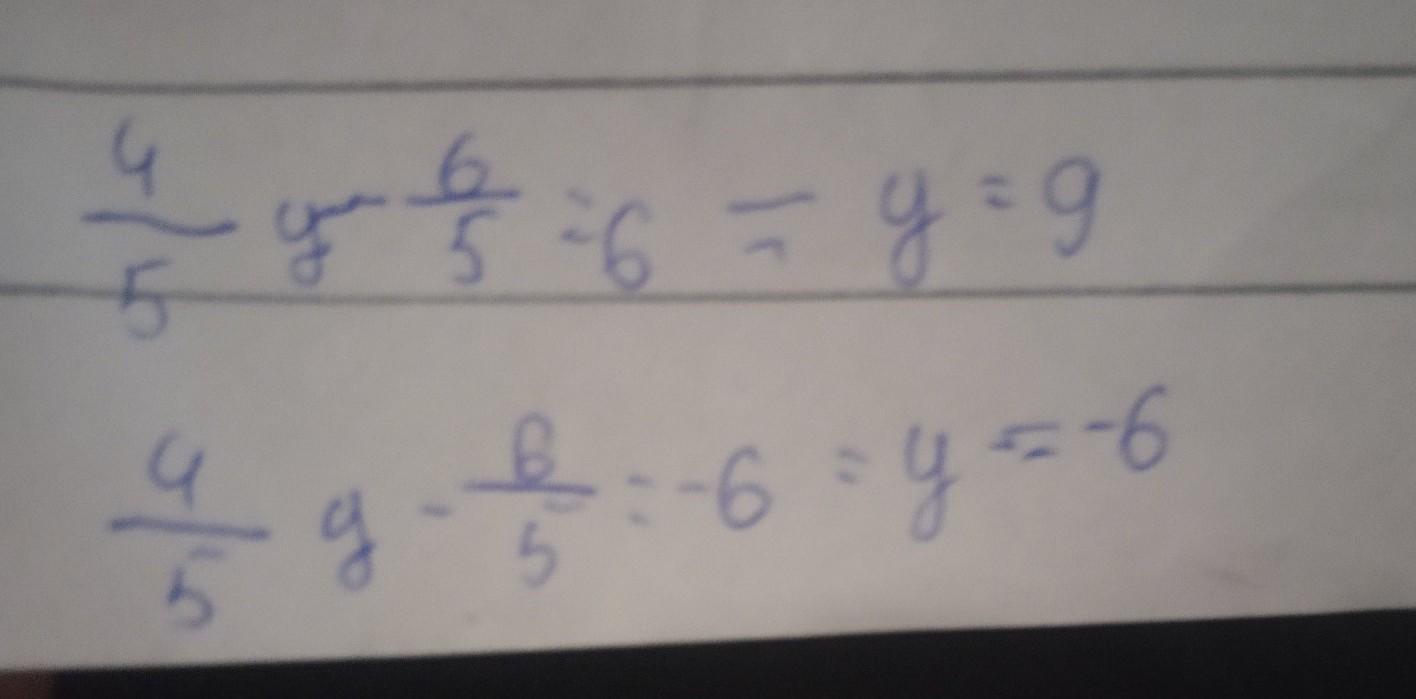 4/5 y - 6/5 = 6 = y = 9
4/5 y - 6/5 = -6 = y = -6